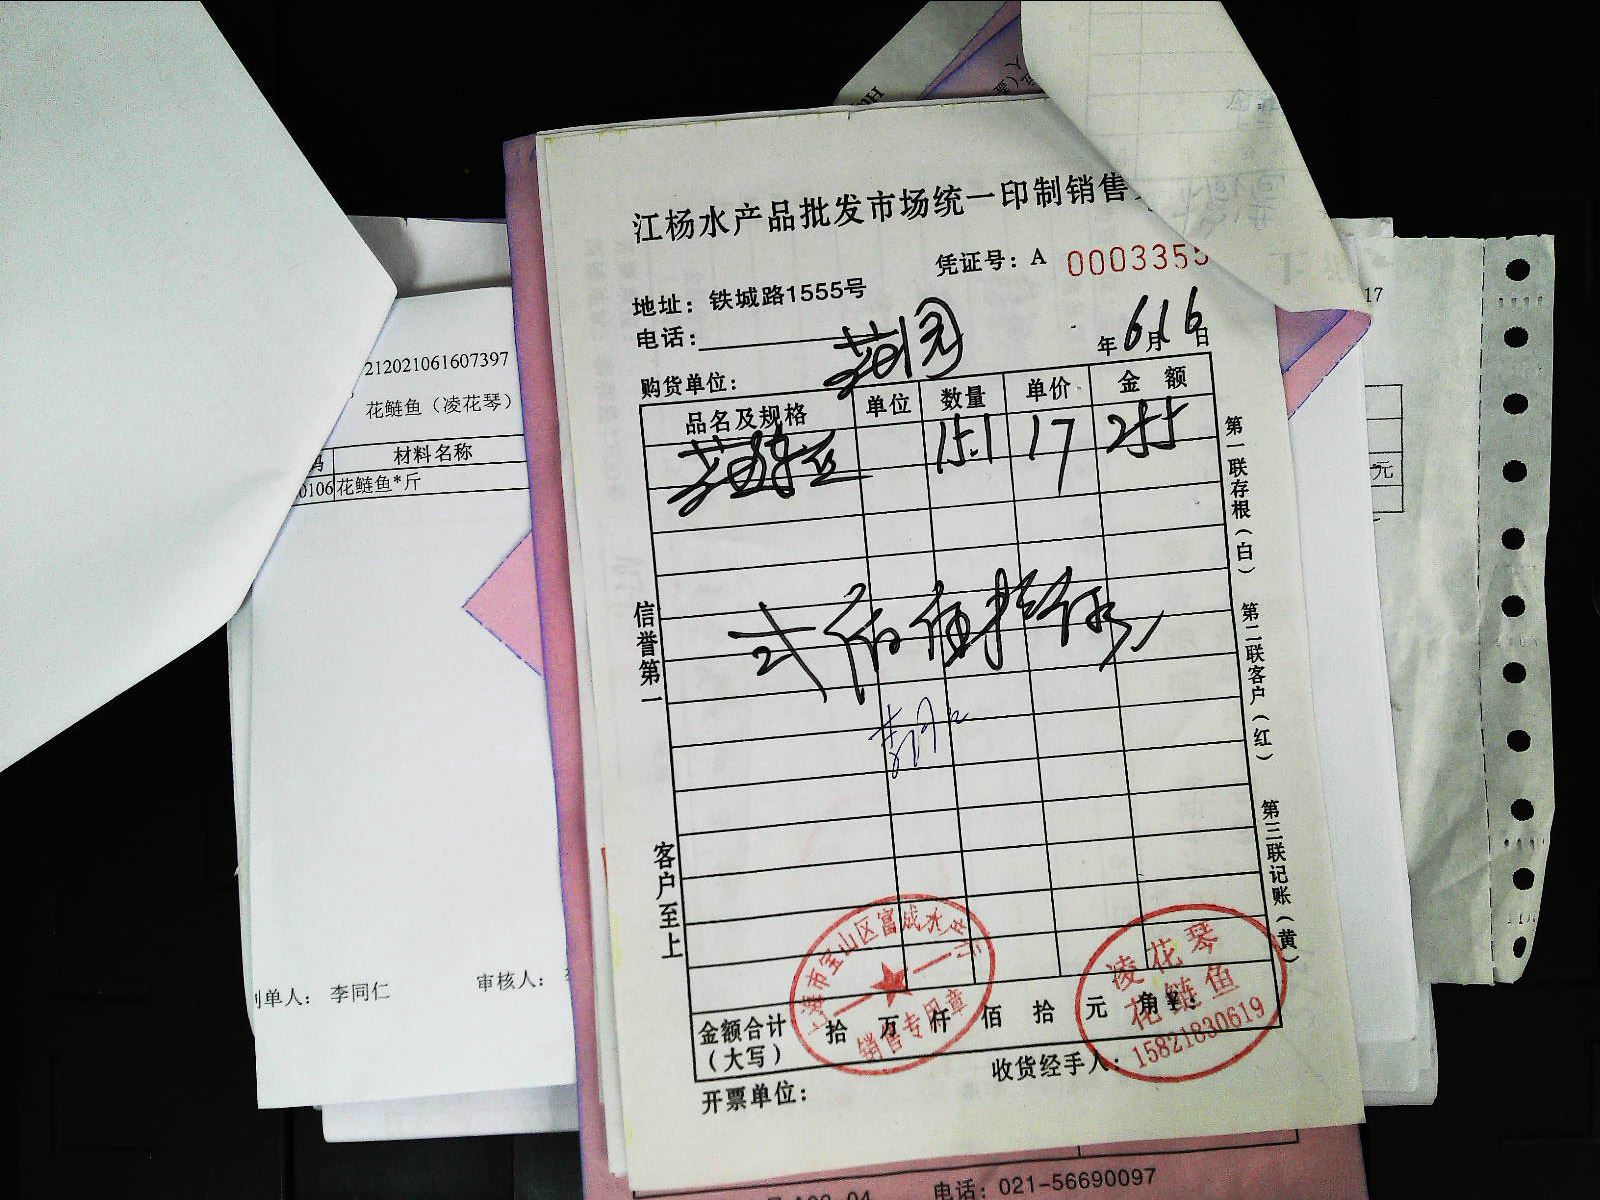 江杨水产品批发市场统一印制销售
凭证号：A 0003355
地址：铁城路1555号
电话：
年6月16日
购货单位：
品名及规格 单位 数量 单价 金 额
花鲢鱼 15.1 17 255
信誉第一
客户至上
第一联存根（白） 第二联客户（红） 第三联记账（黄）
上海市宝山区富成水产行
销售专用章
凌花琴
花鲢鱼
15821830619
金额合计（大写） 拾 万 仟 佰 拾 元 角
收货经手人：
开票单位：
212021061607397
花鲢鱼（凌花琴）
材料名称
0106 花鲢鱼*斤
制单人： 李同仁
审核人：
17
元
电话：021-56690097